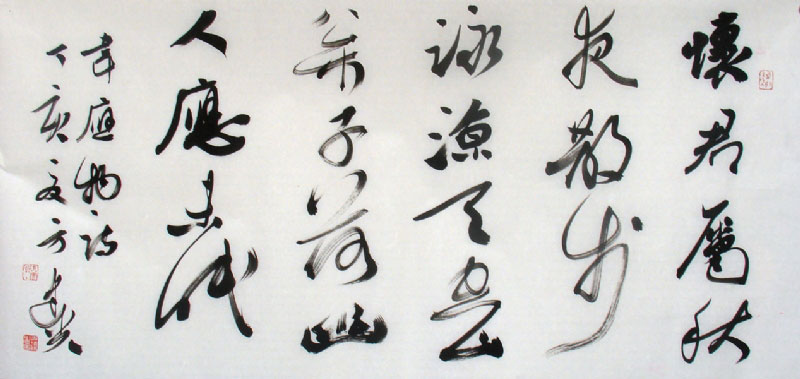 懷君屬秋
夜散步
詠涼天空山
松子落幽
人應未眠
韋應物詩
丁亥夏方